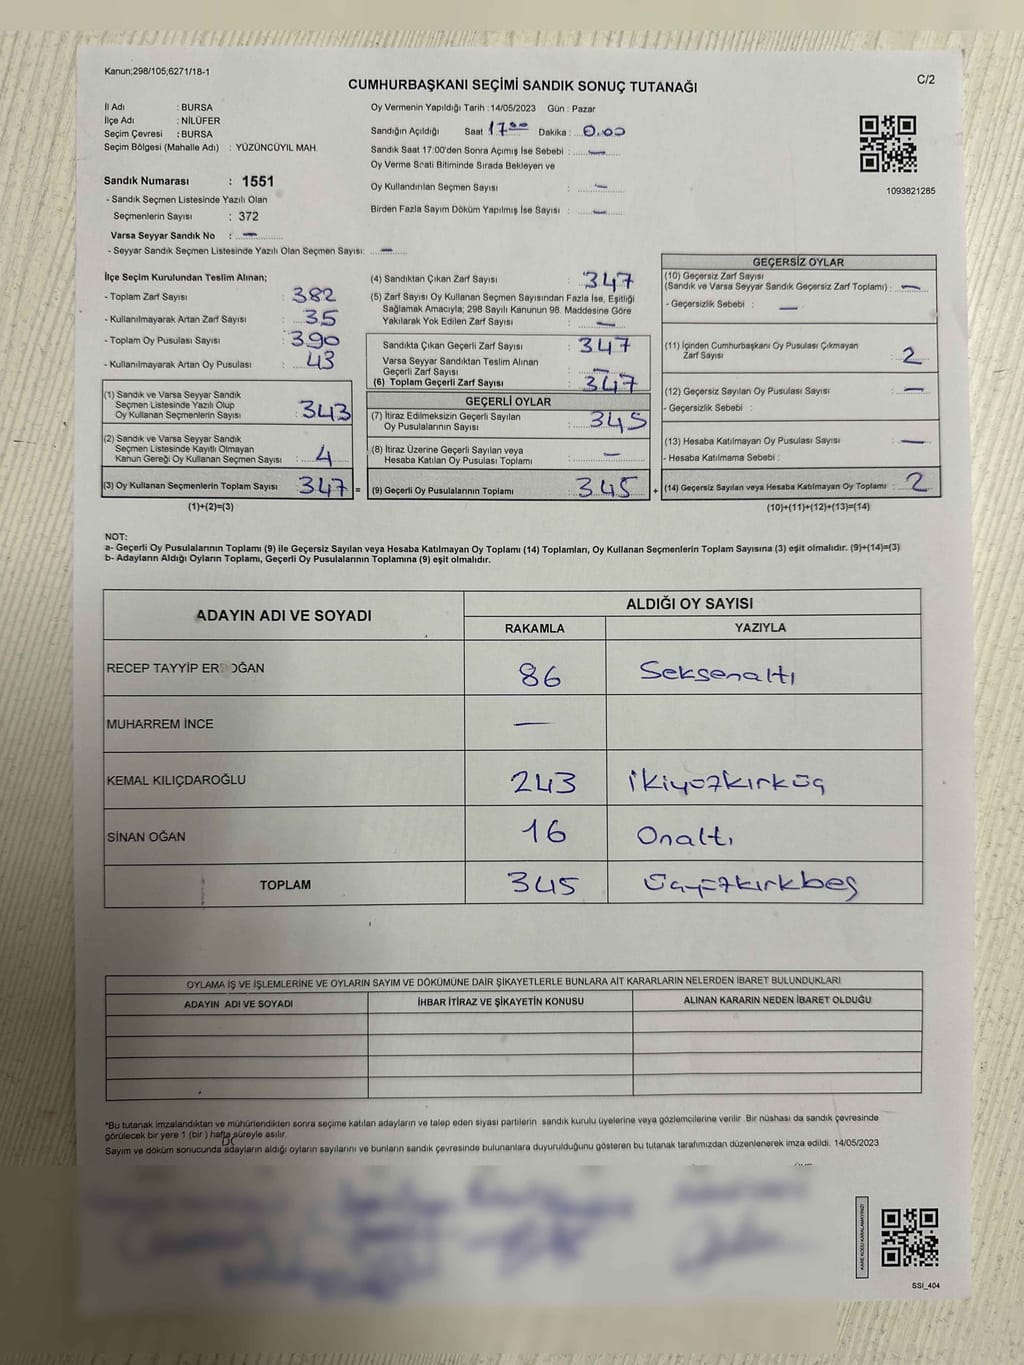 Kanun;298/105;6271/18-1
C/2
CUMHURBAŞKANI SEÇİMİ SANDIK SONUÇ TUTANAĞI
İl Adı : BURSA
İlçe Adı : NİLÜFER
Seçim Çevresi : BURSA
Seçim Bölgesi (Mahalle Adı) : YÜZÜNCÜYIL MAH.
Oy Vermenin Yapıldığı Tarih : 14/05/2023 Gün : Pazar
Sandığın Açıldığı Saat 17:00 Dakika : 0.00
Sandık Saat 17:00'den Sonra Açımış İse Sebebi : —
Oy Verme Saati Bitiminde Sırada Bekleyen ve
Oy Kullandırılan Seçmen Sayısı : —
Birden Fazla Sayım Döküm Yapılmış İse Sayısı : —
1093821285
Sandık Numarası : 1551
- Sandık Seçmen Listesinde Yazılı Olan
Seçmenlerin Sayısı : 372
Varsa Seyyar Sandık No : —
- Seyyar Sandık Seçmen Listesinde Yazılı Olan Seçmen Sayısı: —
İlçe Seçim Kurulundan Teslim Alınan;
- Toplam Zarf Sayısı : 382
- Kullanılmayarak Artan Zarf Sayısı : 35
- Toplam Oy Pusulası Sayısı : 390
- Kullanılmayarak Artan Oy Pusulası : 43
(1) Sandık ve Varsa Seyyar Sandık
Seçmen Listesinde Yazılı Olup
Oy Kullanan Seçmenlerin Sayısı : 343
(2) Sandık ve Varsa Seyyar Sandık
Seçmen Listesinde Kayıtlı Olmayan
Kanun Gereği Oy Kullanan Seçmen Sayısı : 4
(3) Oy Kullanan Seçmenlerin Toplam Sayısı : 347 =
(1)+(2)=(3)
(4) Sandıktan Çıkan Zarf Sayısı : 347
(5) Zarf Sayısı Oy Kullanan Seçmen Sayısından Fazla İse, Eşitliği
Sağlamak Amacıyla; 298 Sayılı Kanunun 98. Maddesine Göre
Yakılarak Yok Edilen Zarf Sayısı : —
Sandıkta Çıkan Geçerli Zarf Sayısı : 347
Varsa Seyyar Sandıktan Teslim Alınan
Geçerli Zarf Sayısı : —
(6) Toplam Geçerli Zarf Sayısı : 347
GEÇERLİ OYLAR
(7) İtiraz Edilmeksizin Geçerli Sayılan
Oy Pusulalarının Sayısı : 345
(8) İtiraz Üzerine Geçerli Sayılan veya
Hesaba Katılan Oy Pusulası Toplamı : —
(9) Geçerli Oy Pusulalarının Toplamı : 345 +
GEÇERSİZ OYLAR
(10) Geçersiz Zarf Sayısı
(Sandık ve Varsa Seyyar Sandık Geçersiz Zarf Toplamı) : —
- Geçersizlik Sebebi : —
(11) İçinden Cumhurbaşkanı Oy Pusulası Çıkmayan
Zarf Sayısı : 2
(12) Geçersiz Sayılan Oy Pusulası Sayısı : —
- Geçersizlik Sebebi :
(13) Hesaba Katılmayan Oy Pusulası Sayısı : —
- Hesaba Katılmama Sebebi :
(14) Geçersiz Sayılan veya Hesaba Katılmayan Oy Toplamı : 2
(10)+(11)+(12)+(13)=(14)
NOT:
a- Geçerli Oy Pusulalarının Toplamı (9) ile Geçersiz Sayılan veya Hesaba Katılmayan Oy Toplamı (14) Toplamları, Oy Kullanan Seçmenlerin Toplam Sayısına (3) eşit olmalıdır. (9)+(14)=(3)
b- Adayların Aldığı Oyların Toplamı, Geçerli Oy Pusulalarının Toplamına (9) eşit olmalıdır.
ADAYIN ADI VE SOYADI
ALDIĞI OY SAYISI
RAKAMLA YAZIYLA
RECEP TAYYİP ERDOĞAN 86 Seksenaltı
MUHARREM İNCE —
KEMAL KILIÇDAROĞLU 243 ikiyüzkırküç
SİNAN OĞAN 16 Onaltı
TOPLAM 345 Üçyüzkırkbeş
OYLAMA İŞ VE İŞLEMLERİNE VE OYLARIN SAYIM VE DÖKÜMÜNE DAİR ŞİKAYETLERLE BUNLARA AİT KARARLARIN NELERDEN İBARET BULUNDUKLARI
ADAYIN ADI VE SOYADI İHBAR İTİRAZ VE ŞİKAYETİN KONUSU ALINAN KARARIN NEDEN İBARET OLDUĞU
*Bu tutanak imzalandıktan ve mühürlendikten sonra seçime katılan adayların ve talep eden siyasi partilerin sandık kurulu üyelerine veya gözlemcilerine verilir. Bir nüshası da sandık çevresinde
görülecek bir yere 1 (bir ) hafta süreyle asılır.
Sayım ve döküm sonucunda adayların aldığı oyların sayılarını ve bunların sandık çevresinde bulunanlara duyurulduğunu gösteren bu tutanak tarafımızdan düzenlenerek imza edildi. 14/05/2023
SSI_404